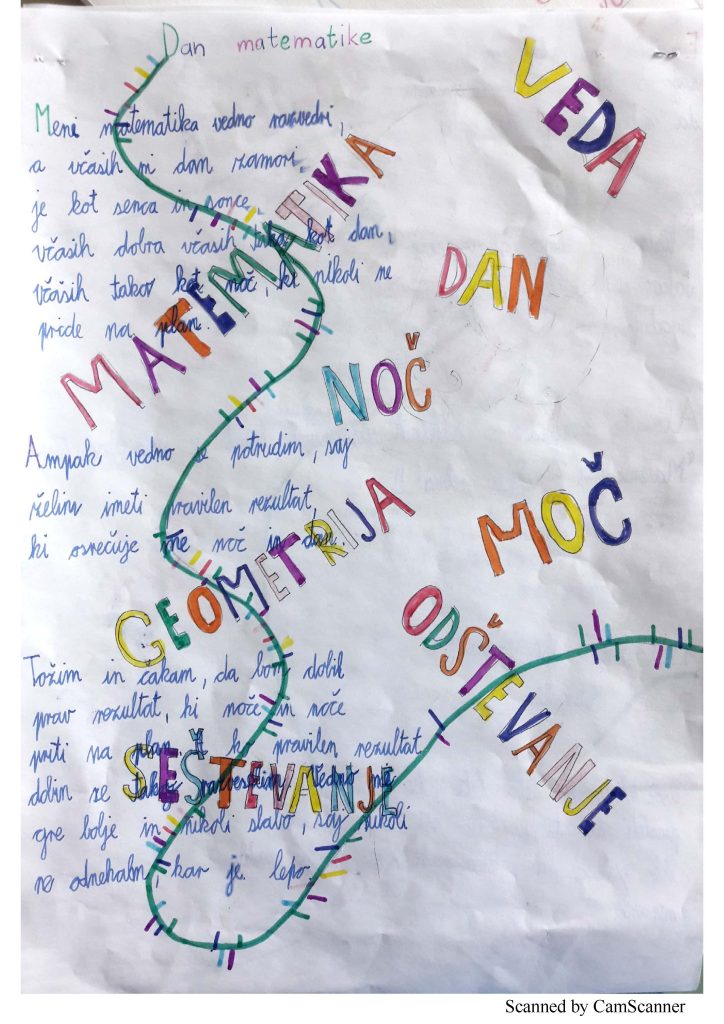 Dan matematike
VEDA
Meni matematika vedno razvedri,
a včasih mi dan zamori.
je kot senca in sonce,
včasih dobra včasih taka kot dan,
včasih takov kot noč, ki nikoli ne
pride na plan.
MATEMATIKA
DAN
NOČ
Ampak vedno se potrudim, saj
želim imeti pravilen rezultat,
ki osrečuje me noč in dan.
MOČ
GEOMETRIJA
ODŠTEVANJE
Tožim in čakam, da bom dobil
prav rezultat, ki noče in noče
priti na plan. ko pravilen rezultat
dobim se tako razveselim. Vedno mi
gre bolje in nikoli slabo, saj nikoli
ne odneham, kar je lepo.
SEŠTEVANJE
Scanned by CamScanner